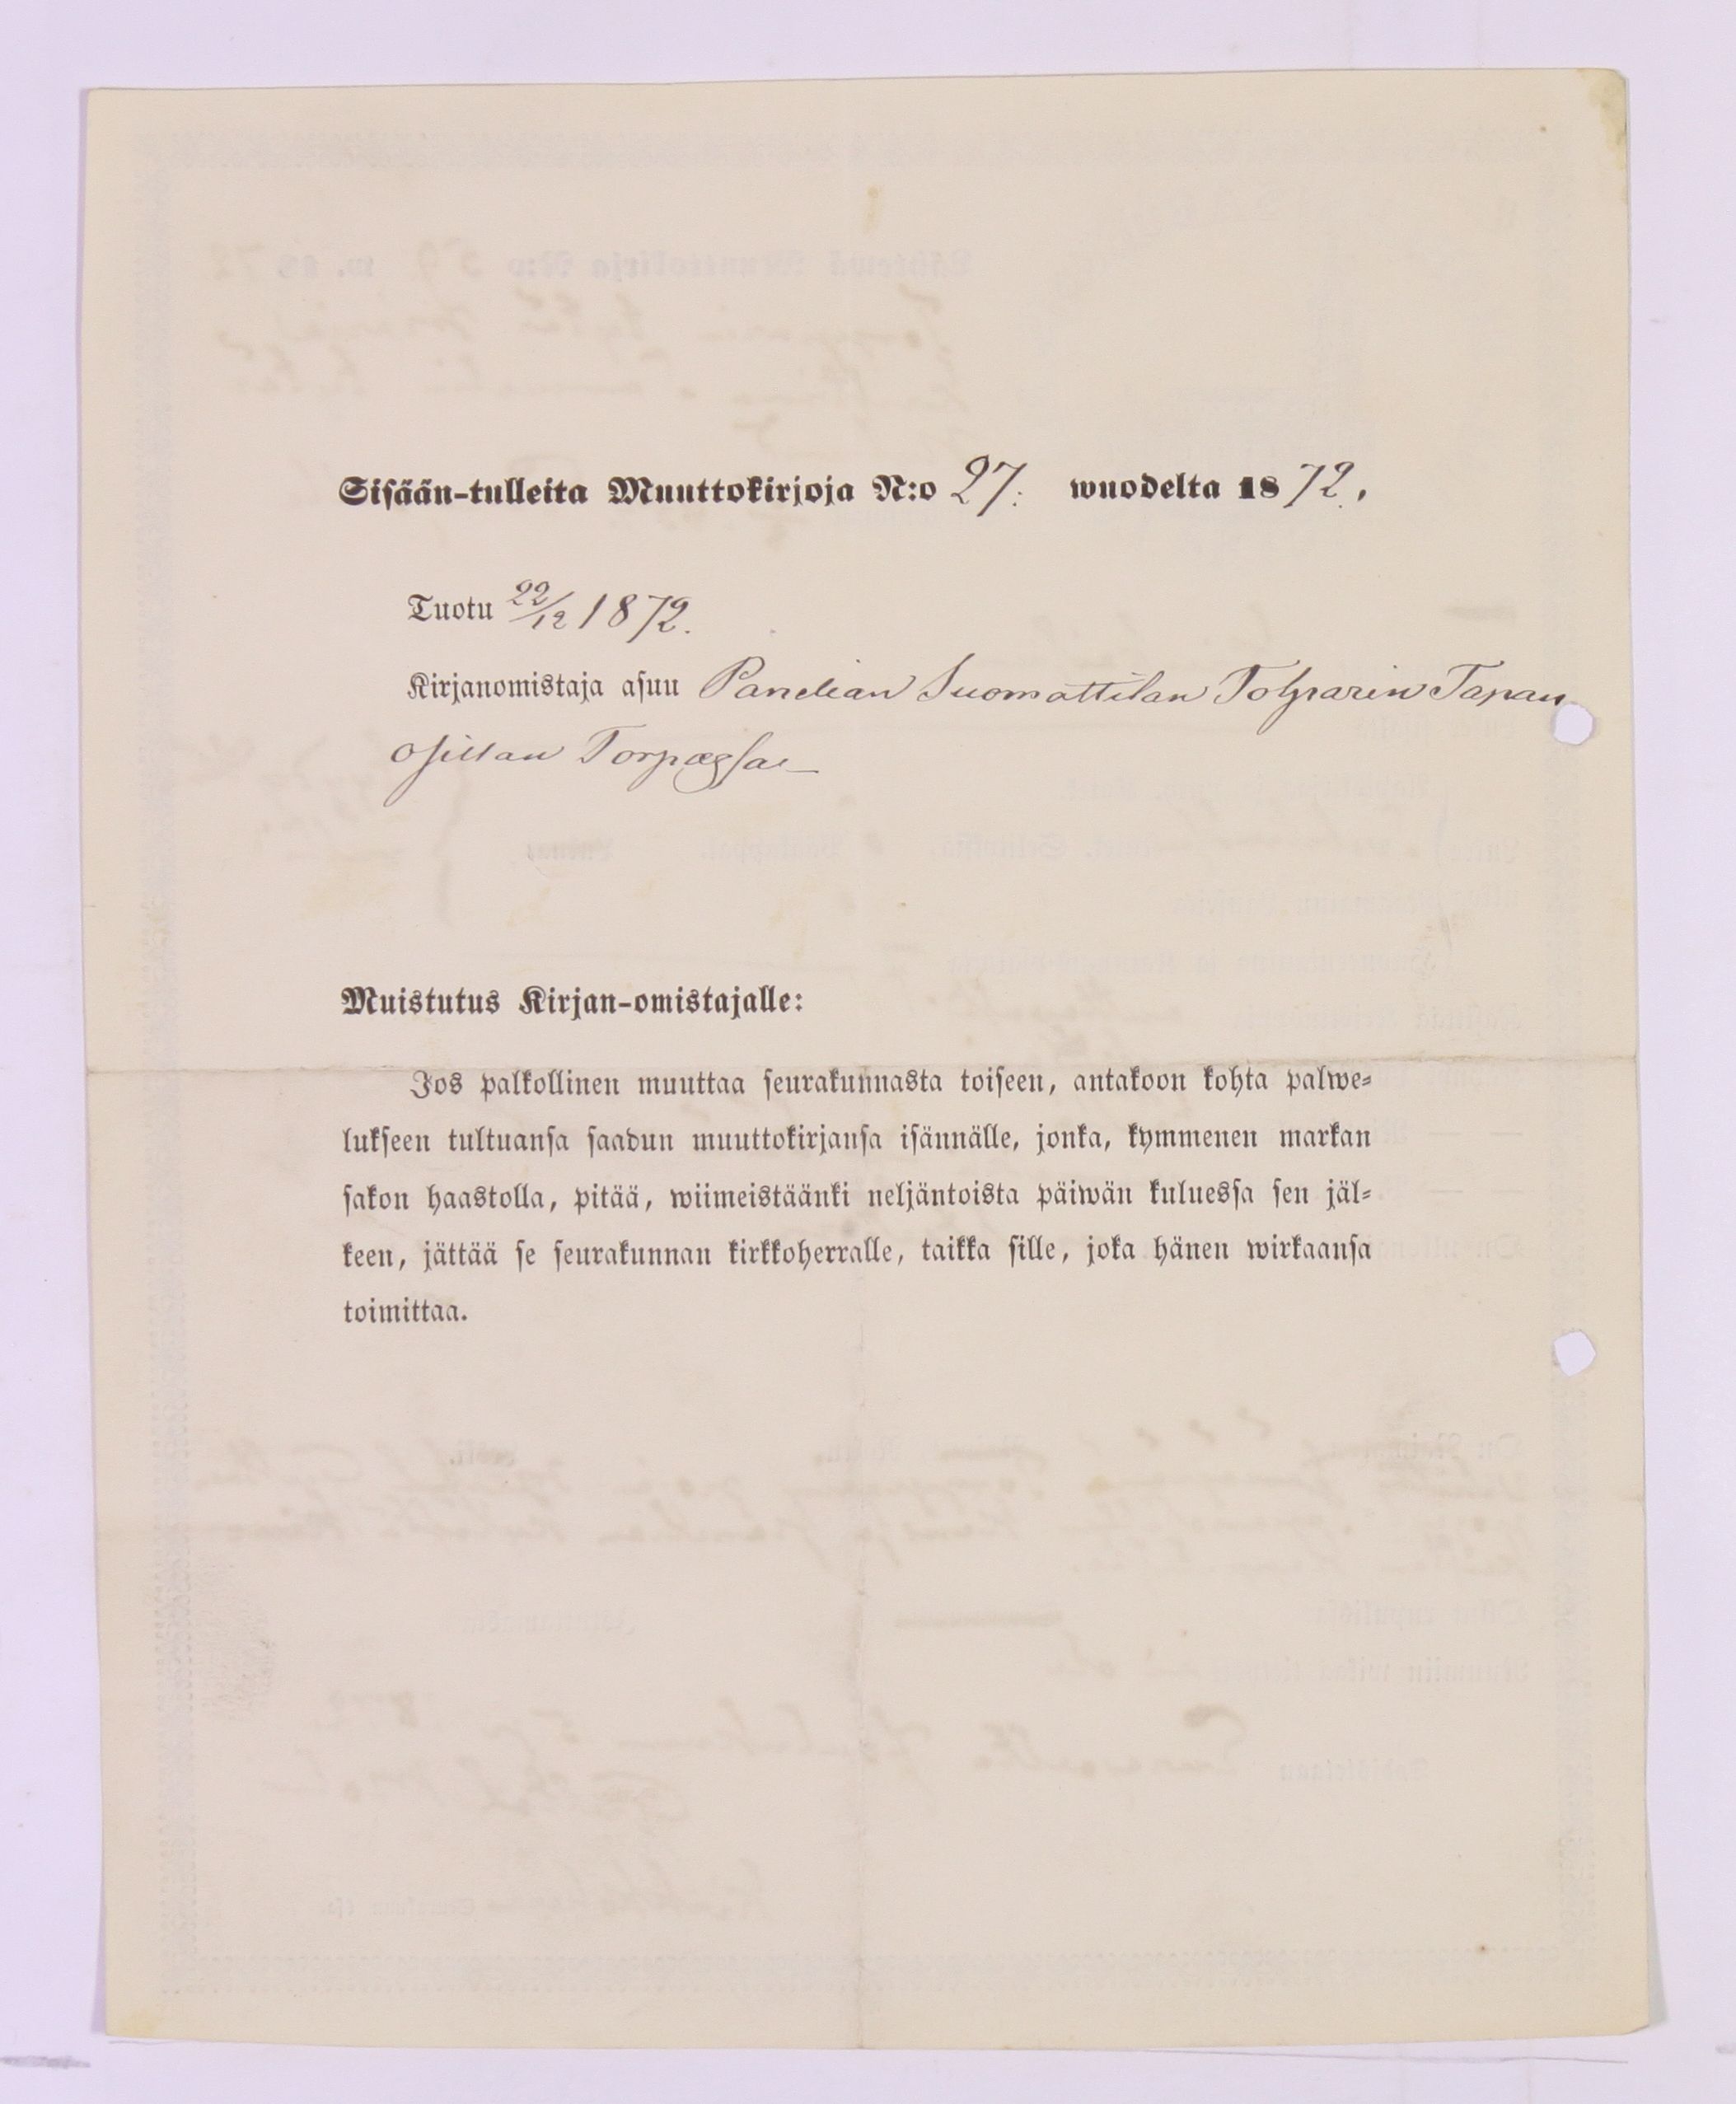 Sisään-tulleita Muuttokirjoja N:o 27. wuodelta 1872.
Tuotu 22/12 1872.
Kirjanomistaja asuu Panelian Suomattilan Tolparin Tapan
osillan Torpassa
Muistutus Kirjan-omistajalle:
Jos palkollinen muuttaa seurakunnasta toiseen, antakoon kohta palwe-
lukseen tultuansa saadun muuttokirjansa isännälle, jonka, kymmenen markan
sakon haastolla, pitää, wiimeistäänki neljäntoista päiwän kuluessa sen jäl-
keen, jättää se seurakunnan kirkkoherralle, taikka sille, joka hänen wirkaansa
toimittaa.